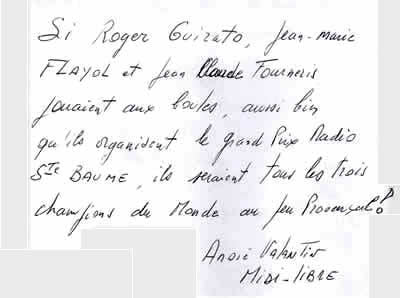 Si Roger Guizato, Jean-marie
FLAYOL et Jean Claude Fourneris
jouaient aux boules, aussi bien
qu'ils organisent le grand Prix Radio
Ste BAUME, ils seraient tous les trois
champions du Monde au Jeu Provençal !
André Valentin
MIDI-LIBRE